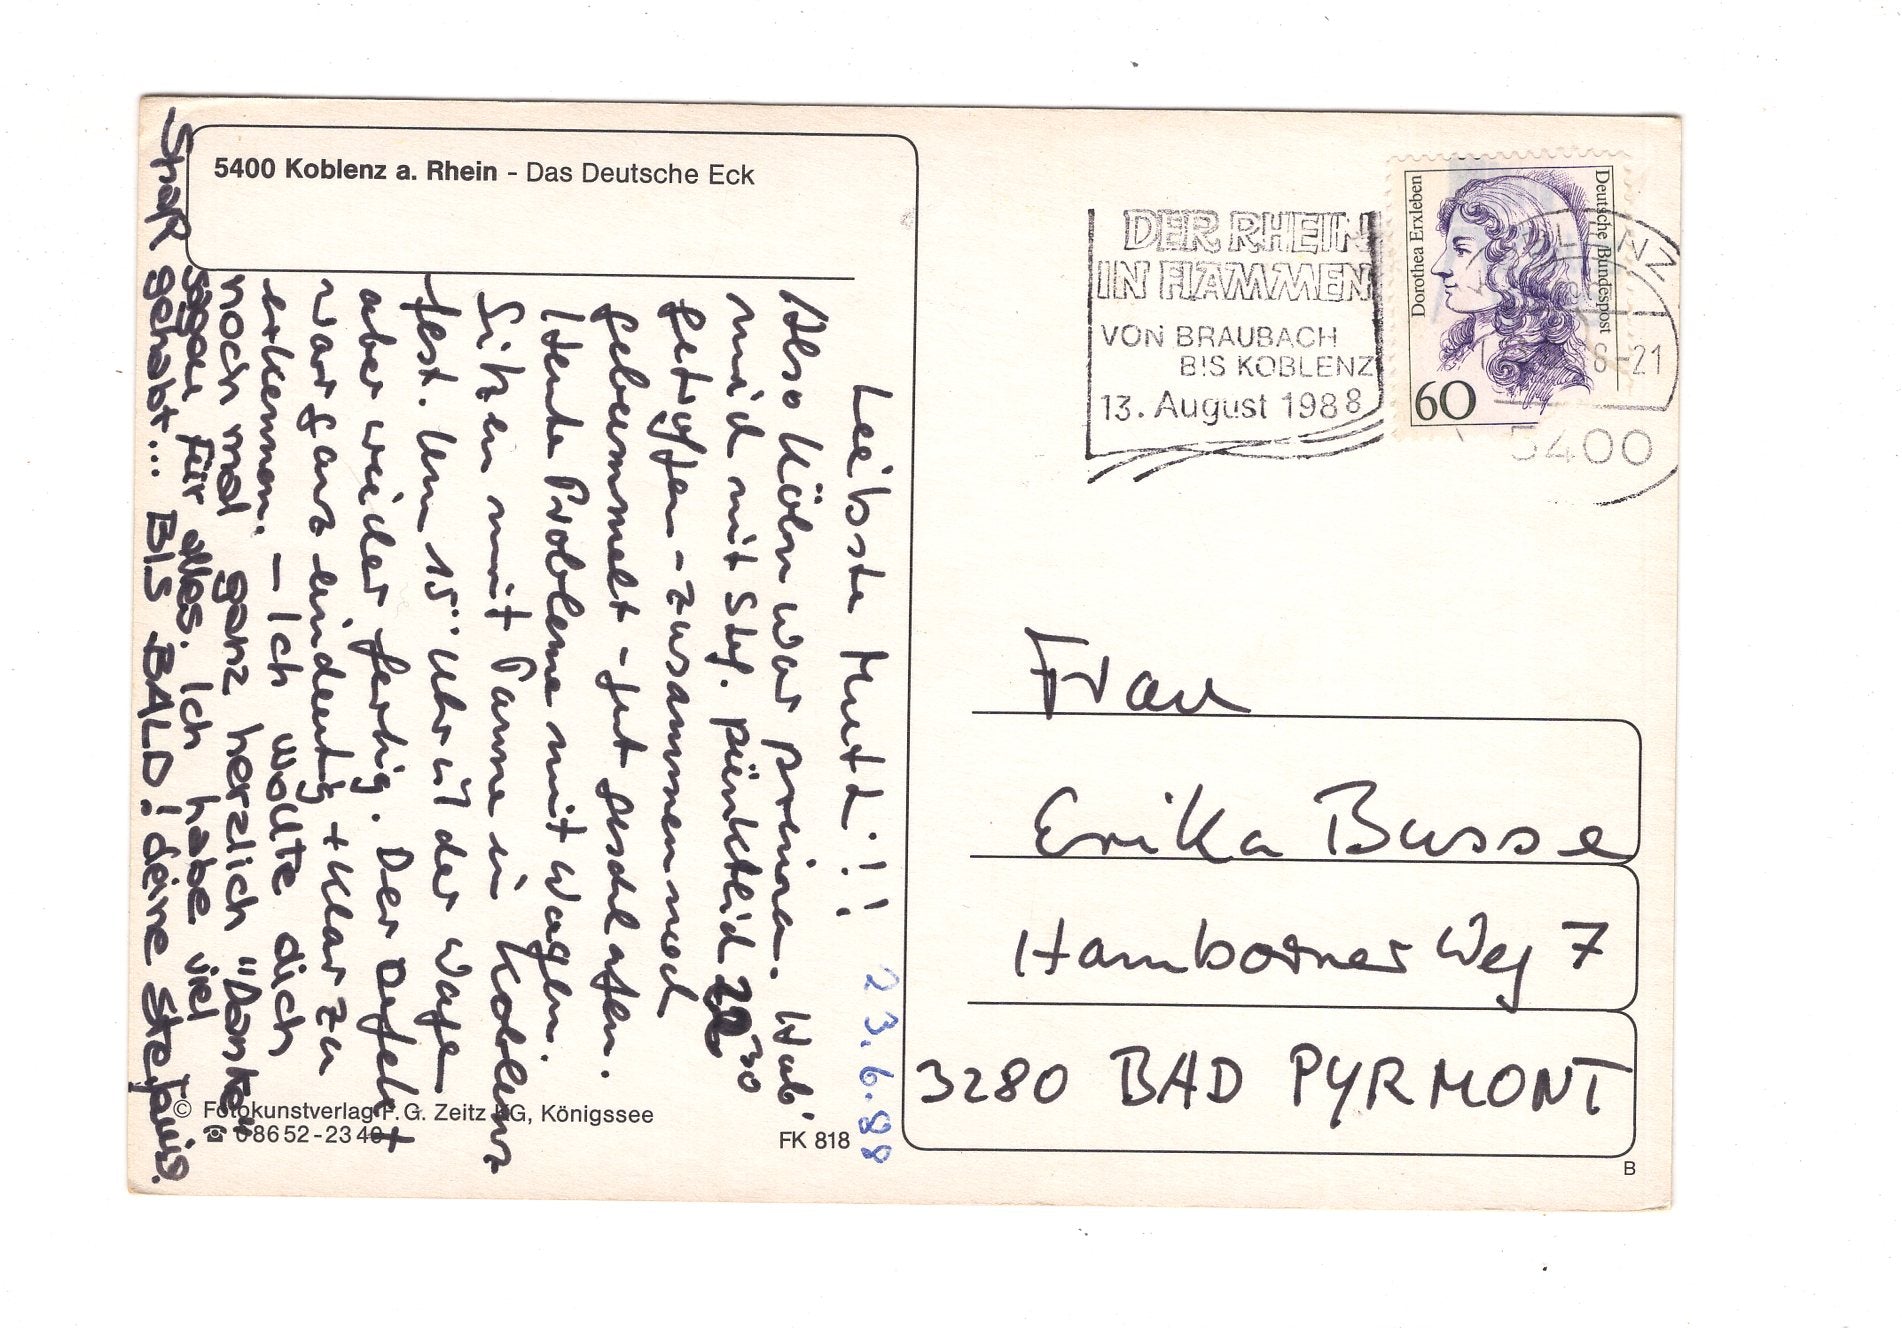 5400 Koblenz a. Rhein - Das Deutsche Eck
Leibste Mutti!!!
23.6.88
Also Köln war prima. Hab'
mich mit Stef. pünktlich 22³⁰
getroffen - zusammen noch
gebummelt - gut geschlafen.
Heute Probleme mit Wagen.
Sitzen mit Panne in Koblenz
fest. Um 15⁰⁰ Uhr ist der Wagen
aber wieder fertig. Der Defekt
war ganz eindeutig + klar zu
erkennen. - Ich wollte dich
noch mal ganz herzlich "Danke"
sagen für alles. Ich habe viel
Spaß gehabt... BIS BALD! deine Stefanie.
© Fotokunstverlag F.G. Zeitz KG, Königssee
☎ 08652-2340
FK 818
DER RHEIN
IN FLAMMEN
VON BRAUBACH
BIS KOBLENZ
13. August 1988
Dorothea Erxleben
Deutsche Bundespost
60
LENZ
8-21
5400
Frau
Erika Busse
Hamborner Weg 7
3280 BAD PYRMONT
B